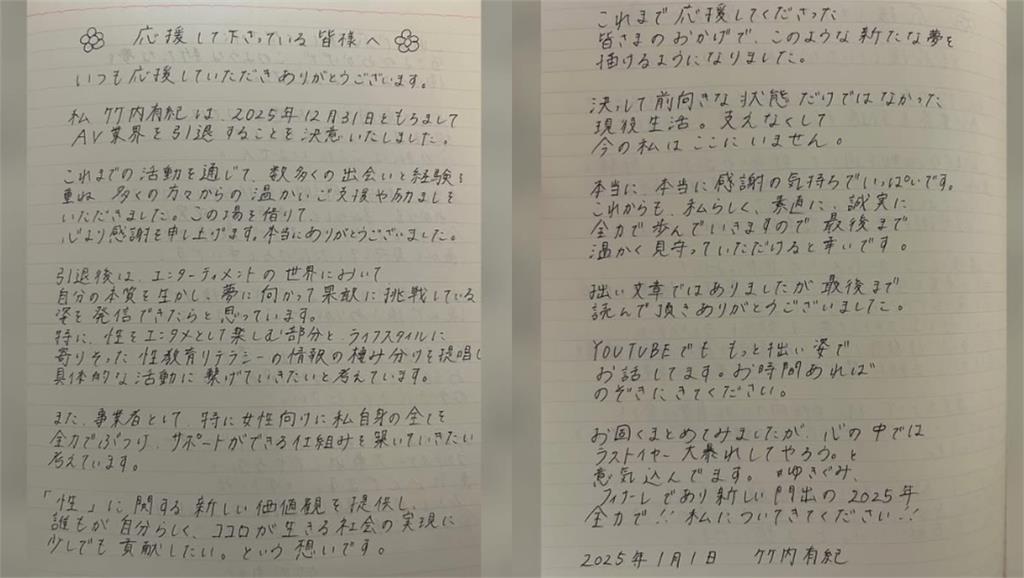 応援して下さっている皆様へ
いつも応援していただきありがとうございます。
私 竹内有紀は 2025年12月31日をもちまして
AV業界を引退することを決意いたしました。
これまでの活動を通じて、数多くの出会いと経験を
重ね 多くの方々からの温かいご支援や励ましを
いただきました。この場を借りて
心より感謝を申し上げます。本当にありがとうございました。
引退後は、エンターティメントの世界において
自分の本質を生かし、夢に向かって果敢に挑戦している
姿を発信できたらと思っています。
特に、性をエンタメとして楽しむ部分と、ライフスタイルに
寄りそった性教育リテラシーの情報の棲み分けを提唱し
具体的な活動に繋げていきたいと考えています。
また、事業者として、特に女性向けに私自身の全てを
全力でぶつけ、サポートができる仕組みを築いていきたい
考えています。
「性」に関する新しい価値観を提供し、
誰もが自分らしく、ココロが生きる社会の実現に
少しでも貢献したい。という想いです。
これまで応援してくださった
皆さまのおかげで、このような新たな夢を
描けるようになりました。
決して前向きな状態だけではなかった
現役生活。支えなくして
今の私はここにいません。
本当に、本当に感謝の気持ちでいっぱいです。
これからも、私らしく、素直に、誠実に
全力で歩んでいきますので最後まで
温かく見守っていただけると幸いです。
拙い文章ではありましたが最後まで
読んで頂きありがとうございました。
YOUTUBEでも もっと拙い姿で
お話してます。お時間あれば
のぞきにきてください。
お固くまとめてみましたが、心の中では
ラストイヤー大暴れしてやろう。と
意気込んでます。#ゆきぐみ、
フィナーレであり新しい門出の2025年
全力で!!私についてきてください!!
2025年1月1日 竹内有紀